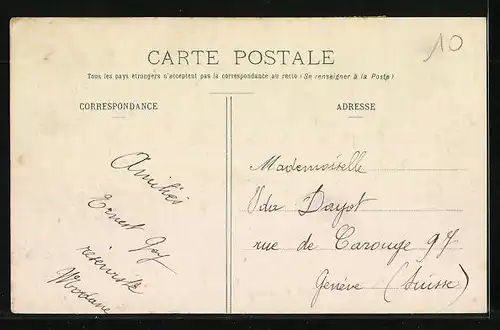 10
CARTE POSTALE
Tous les pays étrangers n'acceptent pas la correspondance au recto (Se renseigner à la Poste)
CORRESPONDANCE
ADRESSE
Amitiés
Ernest Gay
réserviste
Modane
Mademoiselle
Ida Dayot
rue de Carouge 97
Genève (Suisse)